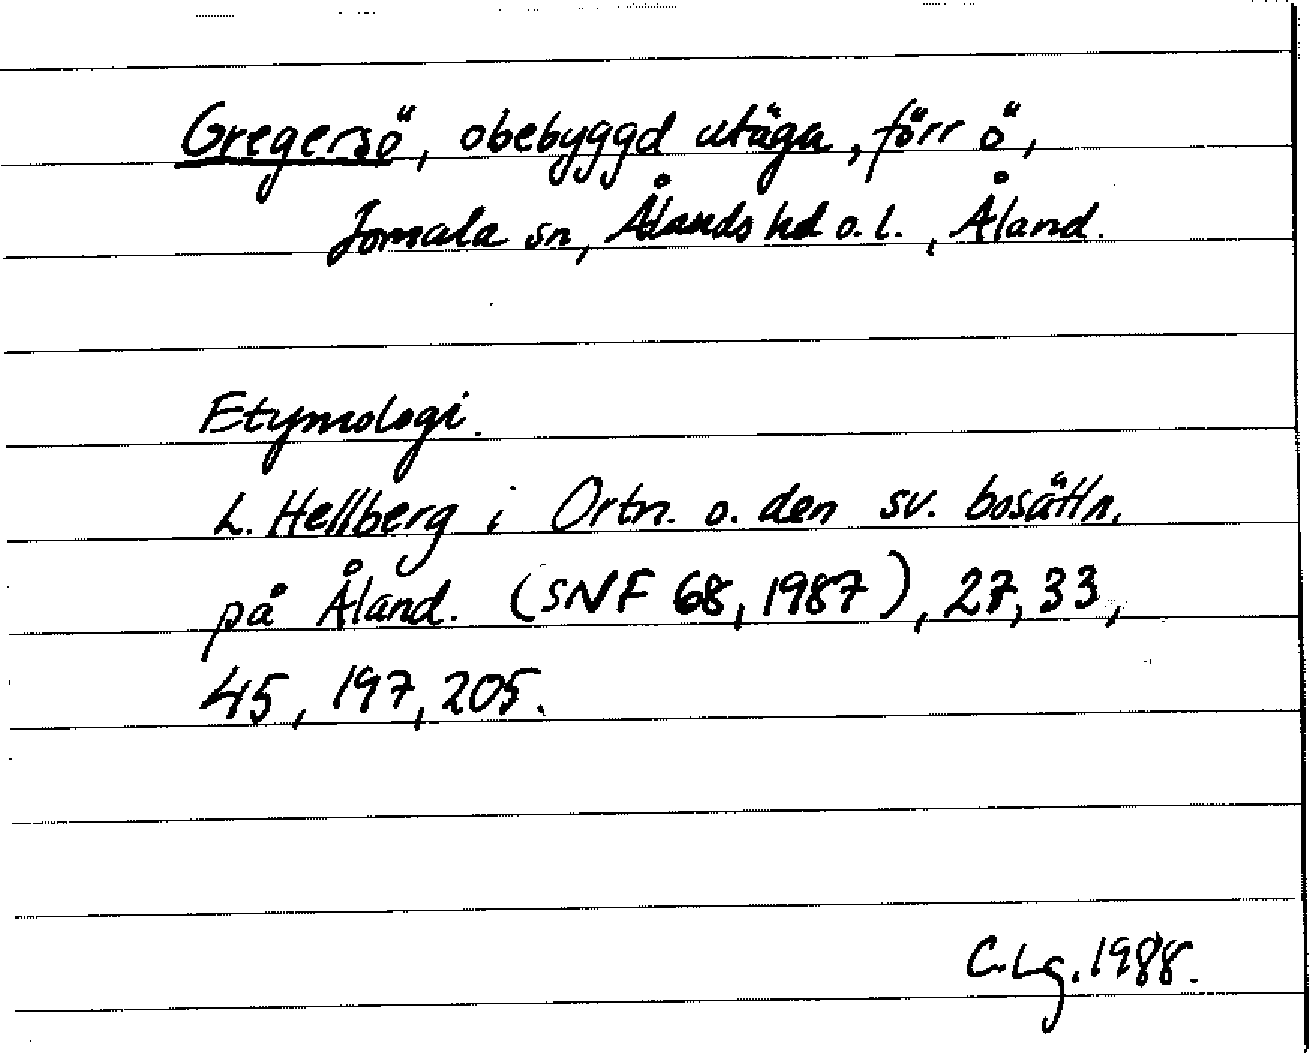 Gregersö, obebyggd utäga, förr ö,
Jomala sn, Ålands hd o. l., Åland.
Etymologi.
L. Hellberg i Ortn. o. den sv. bosättn.
på Åland. (SNF 68, 1987), 27, 33,
45, 197, 205.
C. Lg. 1988.